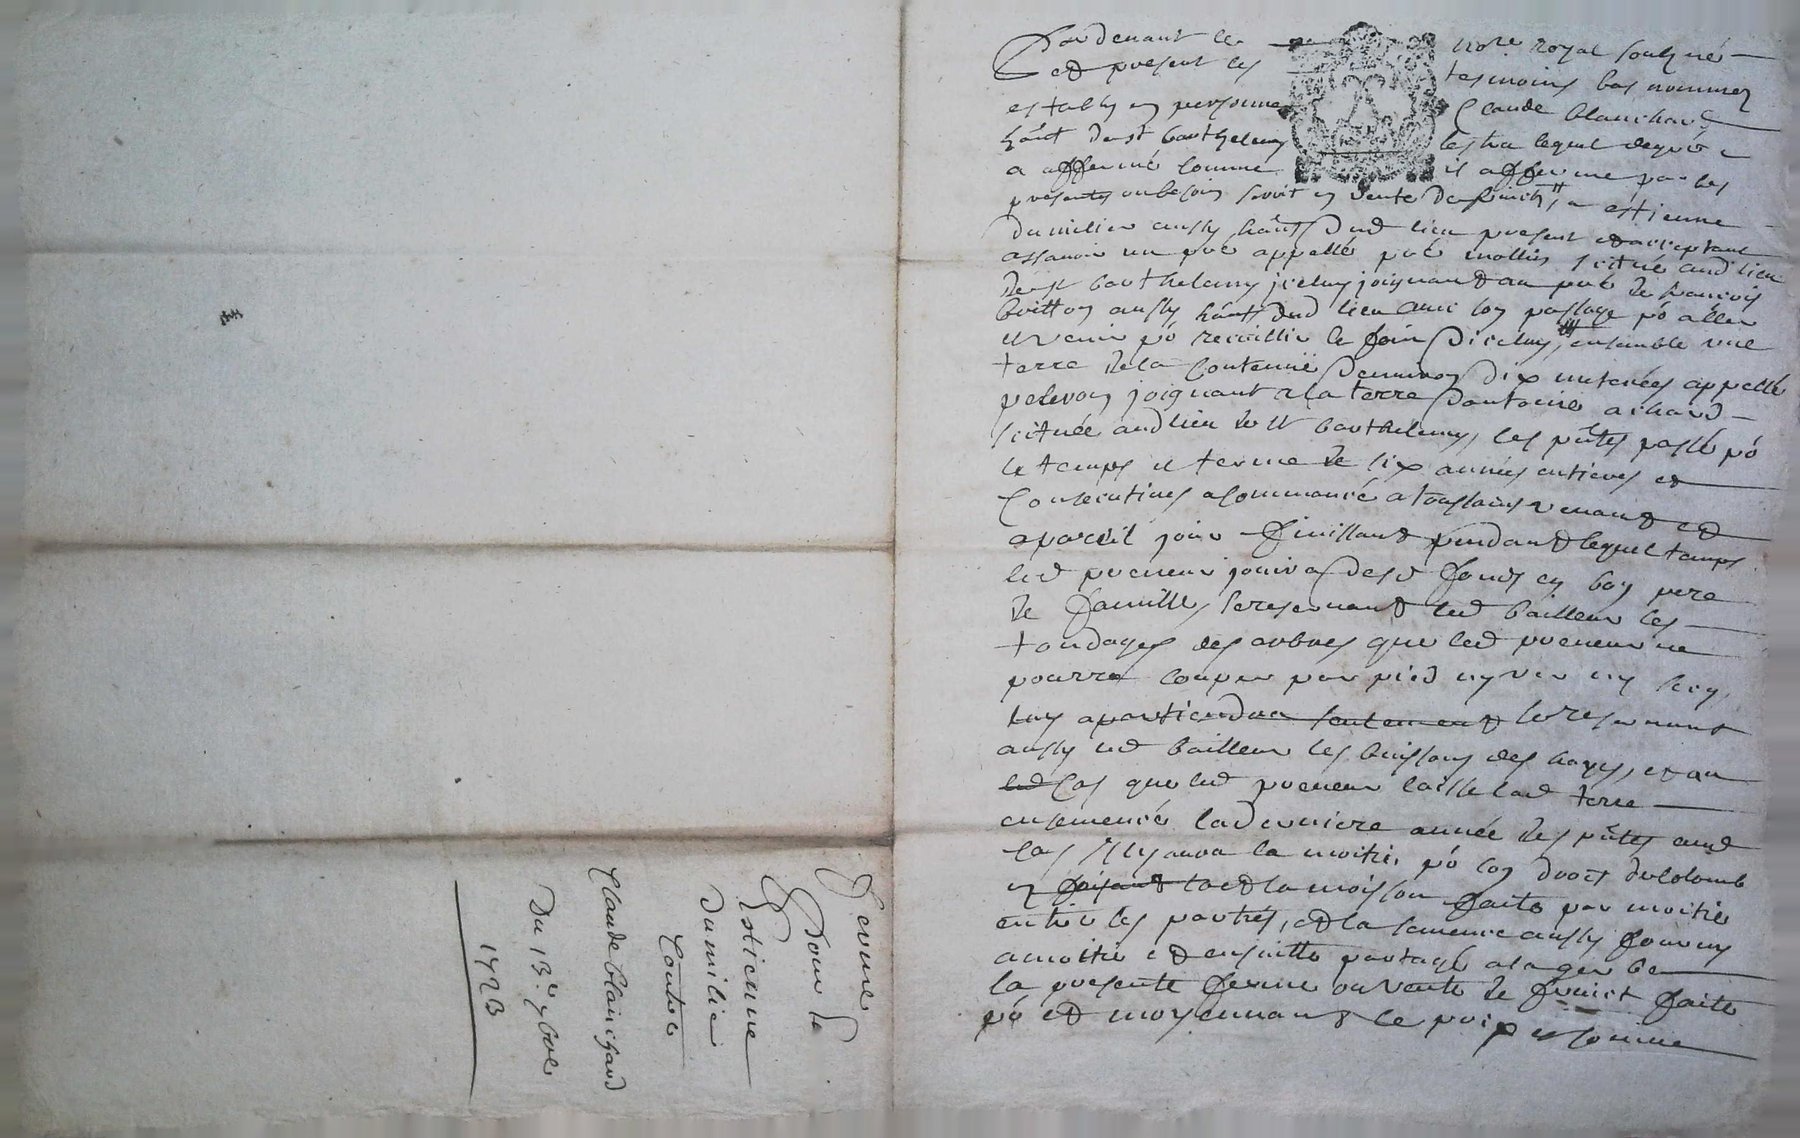 Pardevant le notre royal soubzné
et present les tesmoins bas nommez
estably en personne Claude Blanchard
hánt de st barthelemy lestra lequel degré
a affermé comme il afferme par les
presentes ou besoin seroit en vente de fruicts, a estienne
dumilier aussy hánt dud lieu present et acceptant
assavoir un pré appellé pré mollin scitué aud lieu
de st barthelemy icelluy joignant au pré de francois
boitton aussy hánt dud lieu avec son passage pō aller
et venir pō recuillir le foin dicelluy, ensemble une
terre de la contenue denviron dix meterées appellé
pelevon joignant a la terre dantoine achard
scituée aud lieu de st barthelemy, les pntes passé pō
le temps et terme de six années entieres et
consecutives a commancé a toussaint venant et
a pareil jour finissant pendant lequel temps
led preneur jouira desd fonds en bon pere
de famille, se reservant led bailleur les
tondages des arbres que led preneur ne
pourra couper par pied ny ver ny secq,
luy apartiendra seulement se reservant
aussy led bailleur les buissons des hayes, et au
led cas que led preneur laisse lad terre
ensemencée la derniere année des pntes aud
cas il en aura la moitié pō son droit de colomb
en faisant lad la moisson faite par moitié
entre les parties, et la semence aussy fourny
a moitié et ensuitte partagé a la gerbe
la presente ferme ou vente de fruict faite
pō et moyennant le prix et somme
ferme
Pour
Estienne
Dumilier
Contre
Claude blanchard
Du 13e 9bre
1723